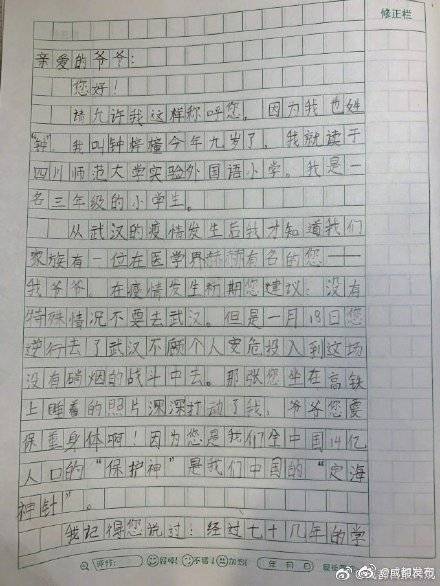 修正栏
亲爱的爷爷:
您好!
请允许我这样称呼您。因为我也姓
"钟"我叫钟梓檀今年九岁了。我就读于
四川师范大学实验外国语小学。我是一
名三年级的小学生。
从武汉的疫情发生后我才知道我们
家族有一位在医学界赫赫有名的您——
我爷爷。在疫情发生初期您建议:没有
特殊情况不要去武汉。但是一月18日您
逆行去了武汉不顾个人安危投入到这场
没有硝烟的战斗中去。那张您坐在高铁
上睡着的照片深深打动了我,爷爷您要
保重身体啊!因为您是我们全中国14亿
人口的"保护神"是我们中国的"定海
神针"。
我记得您说过:经过七十几年的学
评价: 好棒! 不错! 加油! 年 月 日
@成都发布